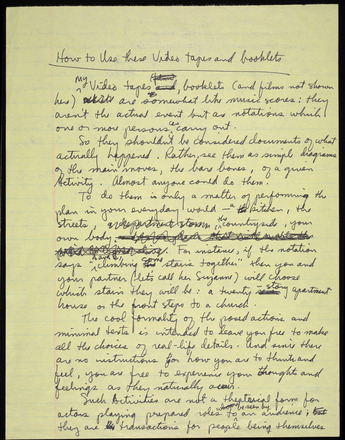 How to Use these Video tapes and booklets
My Video tapes and booklets (and films not shown
here) are somewhat like music scores: they
aren't the actual event but as notations which
one or more persons carry out.
So they shouldn't be considered documents of what
actually happened. Rather, see them as simple diagrams
of the main moves, the bare bones, of a given
Activity. Almost anyone could do them.
To do them is only a matter of performing the
plan in your everyday world – a kitchen, the
streets, a department store, the countryside, your
own body
For instance, if the notation
says "climbing stairs together" then you and
your partner (let's call her Suzanne) will choose
which stairs they will be: a twenty-story apartment
house or the front steps to a church.
The cool formality of the posed actions and
minimal texts is intended to leave you free to make
all the choices of real-life details. And since there
are no instructions for how you are to think and
feel, you are free to experience your thought and
feelings as they naturally occur.
Such Activities are not a theatrical form for
actors playing prepared roles to be seen by an audience;
they are transactions for people being themselves